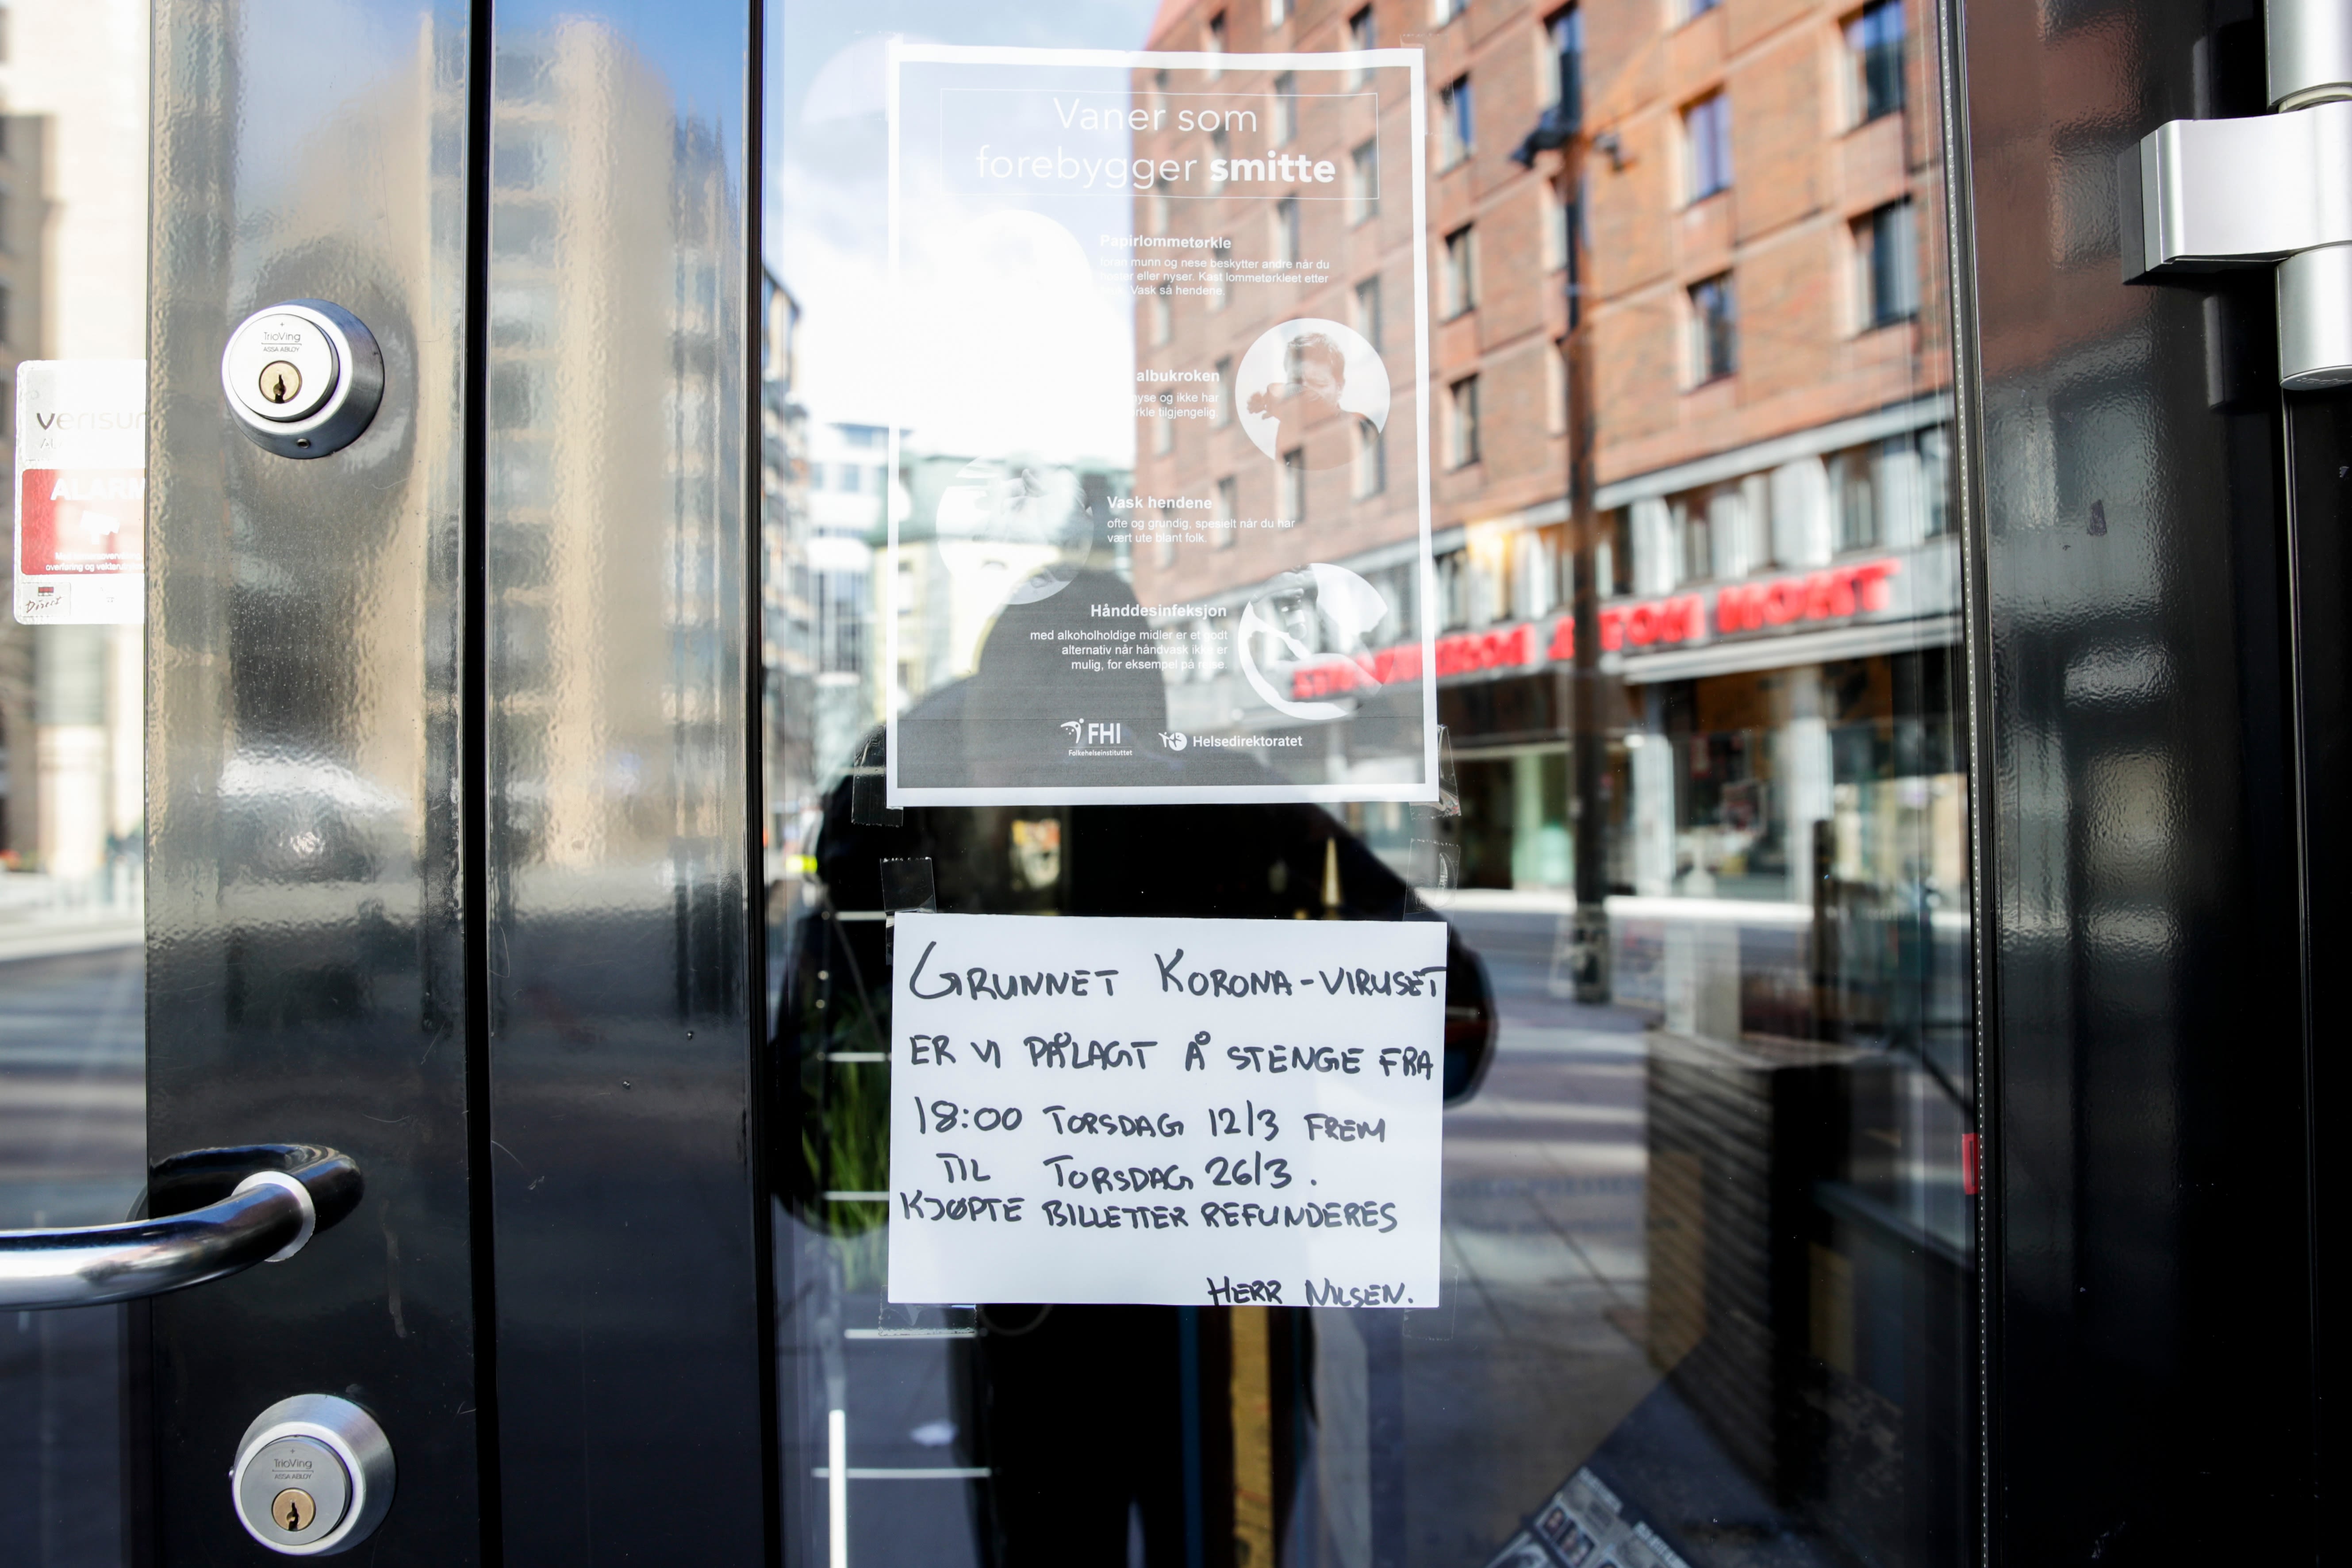 Vaner som
forebygger smitte
Papirlommetørkle
foran munn og nese beskytter andre når du
hoster eller nyser. Kast lommetørkleet etter
Vask så hendene.
albukroken
nyse og ikke har
tilgjengelig.
Vask hendene
ofte og grundig, spesielt når du har
vært ute blant folk.
Hånddesinfeksjon
med alkoholholdige midler er et godt
alternativ når håndvask ikke er
mulig, for eksempel på reise.
FHI
Folkehelseinstituttet
Helsedirektoratet
GRUNNET KORONA-VIRUSET
ER VI PÅLAGT Å STENGE FRA
18:00 TORSDAG 12/3 FREM
TIL TORSDAG 26/3.
KJØPTE BILLETTER REFUNDERES
HERR NILSEN.
TrioVing
ASSA ABLOY
verisur
ALARM
overføring og
Direct
TrioVing
ASSA ABLOY